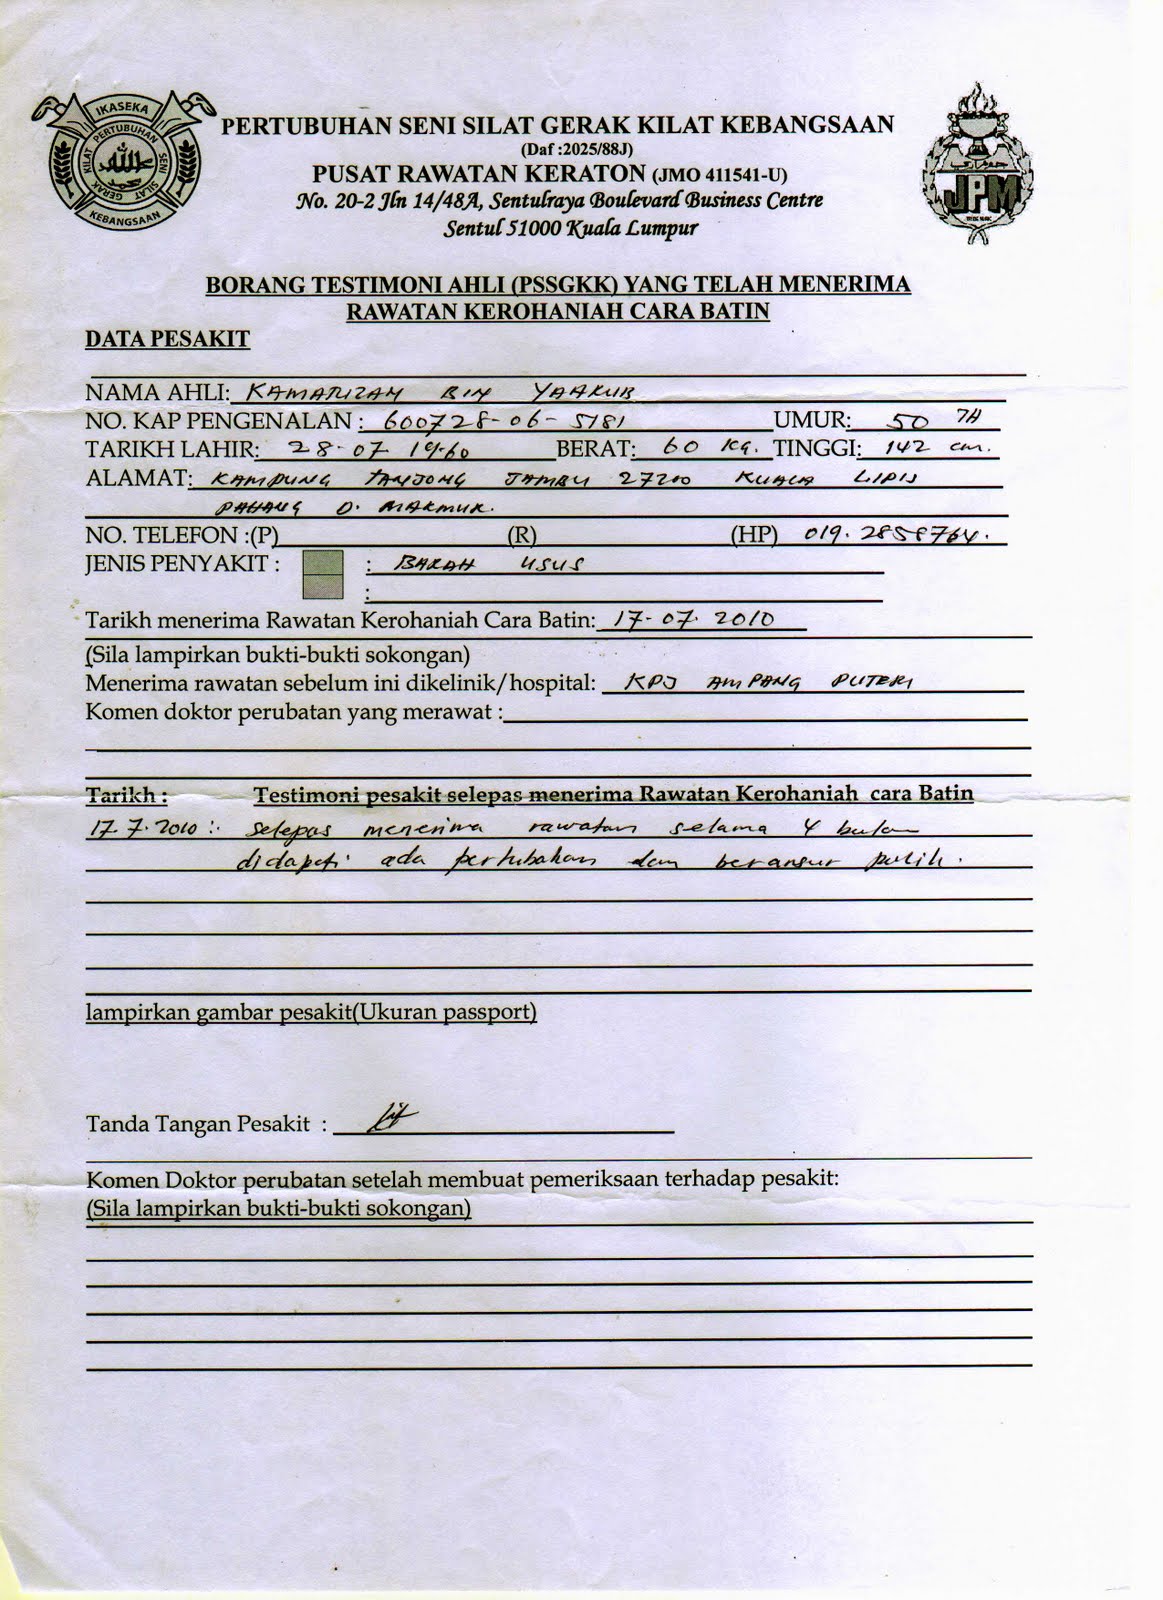 IKASEKA
PERTUBUHAN SENI SILAT GERAK KILAT
KEBANGSAAN
الله
محمد
JPM
PERTUBUHAN SENI SILAT GERAK KILAT KEBANGSAAN
(Daf :2025/88J)
PUSAT RAWATAN KERATON (JMO 411541-U)
No. 20-2 Jln 14/48A, Sentulraya Boulevard Business Centre
Sentul 51000 Kuala Lumpur
BORANG TESTIMONI AHLI (PSSGKK) YANG TELAH MENERIMA
RAWATAN KEROHANIAH CARA BATIN
DATA PESAKIT
NAMA AHLI: KAMARIZAH BIN YAAKUB
NO. KAP PENGENALAN : 600728-06-5181 UMUR: 50 TH
TARIKH LAHIR: 28-07 1960 BERAT: 60 Kg. TINGGI: 142 cm.
ALAMAT: KAMPUNG TANJONG JAMBU 27200 KUALA LIPIS
PAHANG D. MAKMUR.
NO. TELEFON :(P) (R) (HP) 019.2858764.
JENIS PENYAKIT : : BARAH USUS
:
Tarikh menerima Rawatan Kerohaniah Cara Batin: 17-07. 2010
(Sila lampirkan bukti-bukti sokongan)
Menerima rawatan sebelum ini dikelinik/hospital: KPJ AMPANG PUTERI
Komen doktor perubatan yang merawat :
Tarikh : Testimoni pesakit selepas menerima Rawatan Kerohaniah cara Batin
17.7.2010 : selepas menerima rawatan selama 4 bulan
didapati ada pertubahan dan beransur pulih.
lampirkan gambar pesakit(Ukuran passport)
Tanda Tangan Pesakit :
Komen Doktor perubatan setelah membuat pemeriksaan terhadap pesakit:
(Sila lampirkan bukti-bukti sokongan)